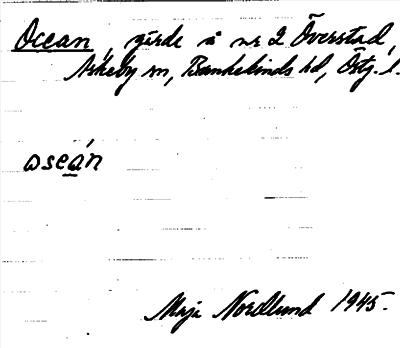 Ocean, gärde å nr 2 Överstad,
Askeby sn, Bankekinds hd, Östg. l.
oseán
Maja Nordlund 1945.